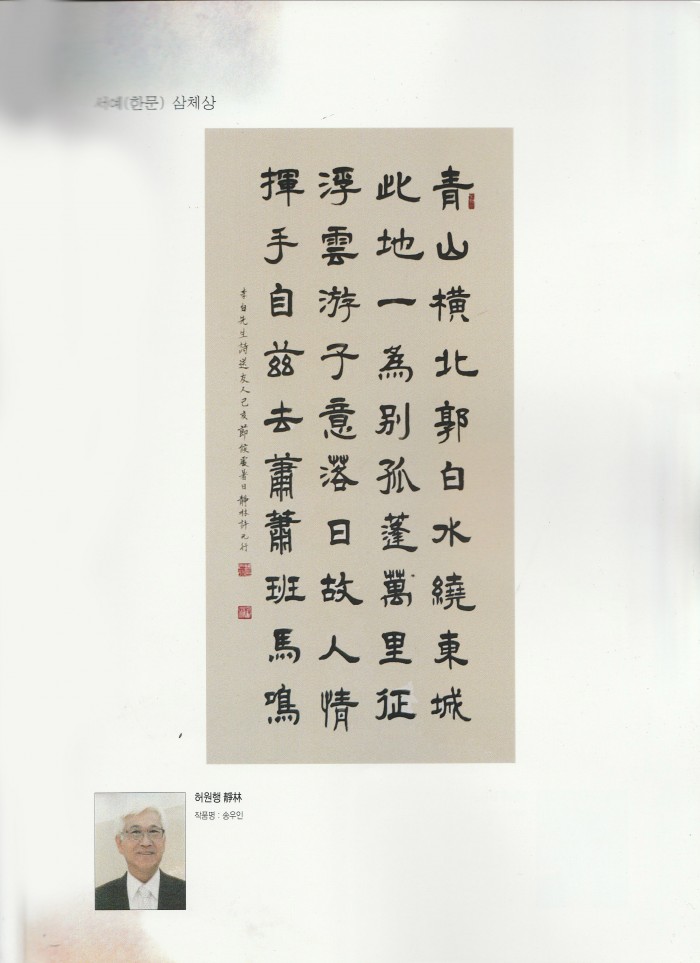 서예(한문) 삼체상
青山橫北郭白水繞東城
此地一為別孤蓬萬里征
浮雲游子意落日故人情
揮手自茲去蕭蕭班馬鳴
李白先生詩送友人己亥節候處暑日靜林許元行
허원행 靜林
작품명 : 송우인